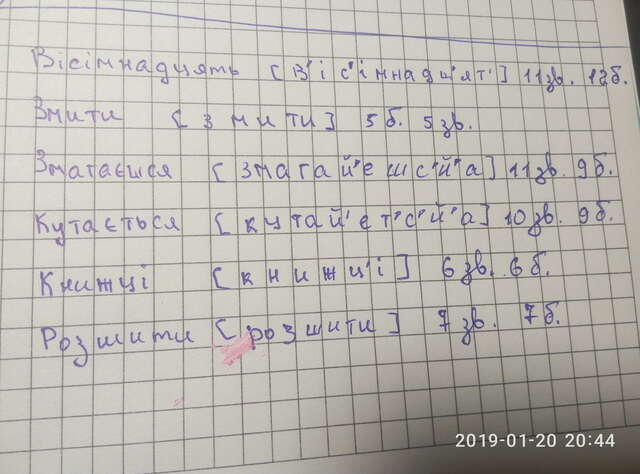 Вісімнадцять [в'і с'імнадц'ят'] 11 зв. 12 б.
Змити [з мити] 5 б. 5 зв.
Змагаєшся [змагай'е ш с'й'а] 11 зв. 9 б.
Кутається [кутай'ет'с'й'а] 10 зв. 9 б.
Книжці [книжц'і] 6 зв. 6 б.
Розшити [розшити] 7 зв. 7 б.
2019-01-20 20:44